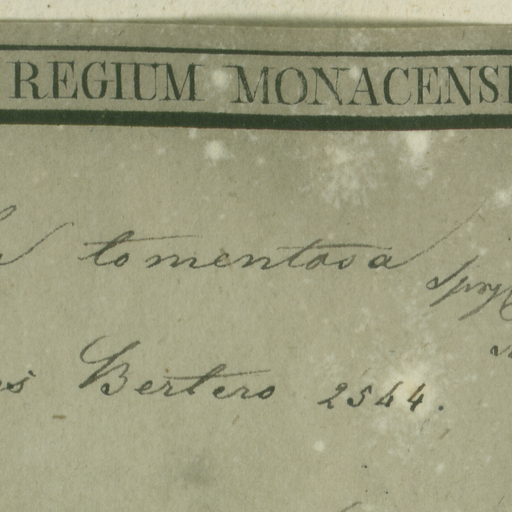 REGIUM MONACENS
tomentosa
Bertero 2544.